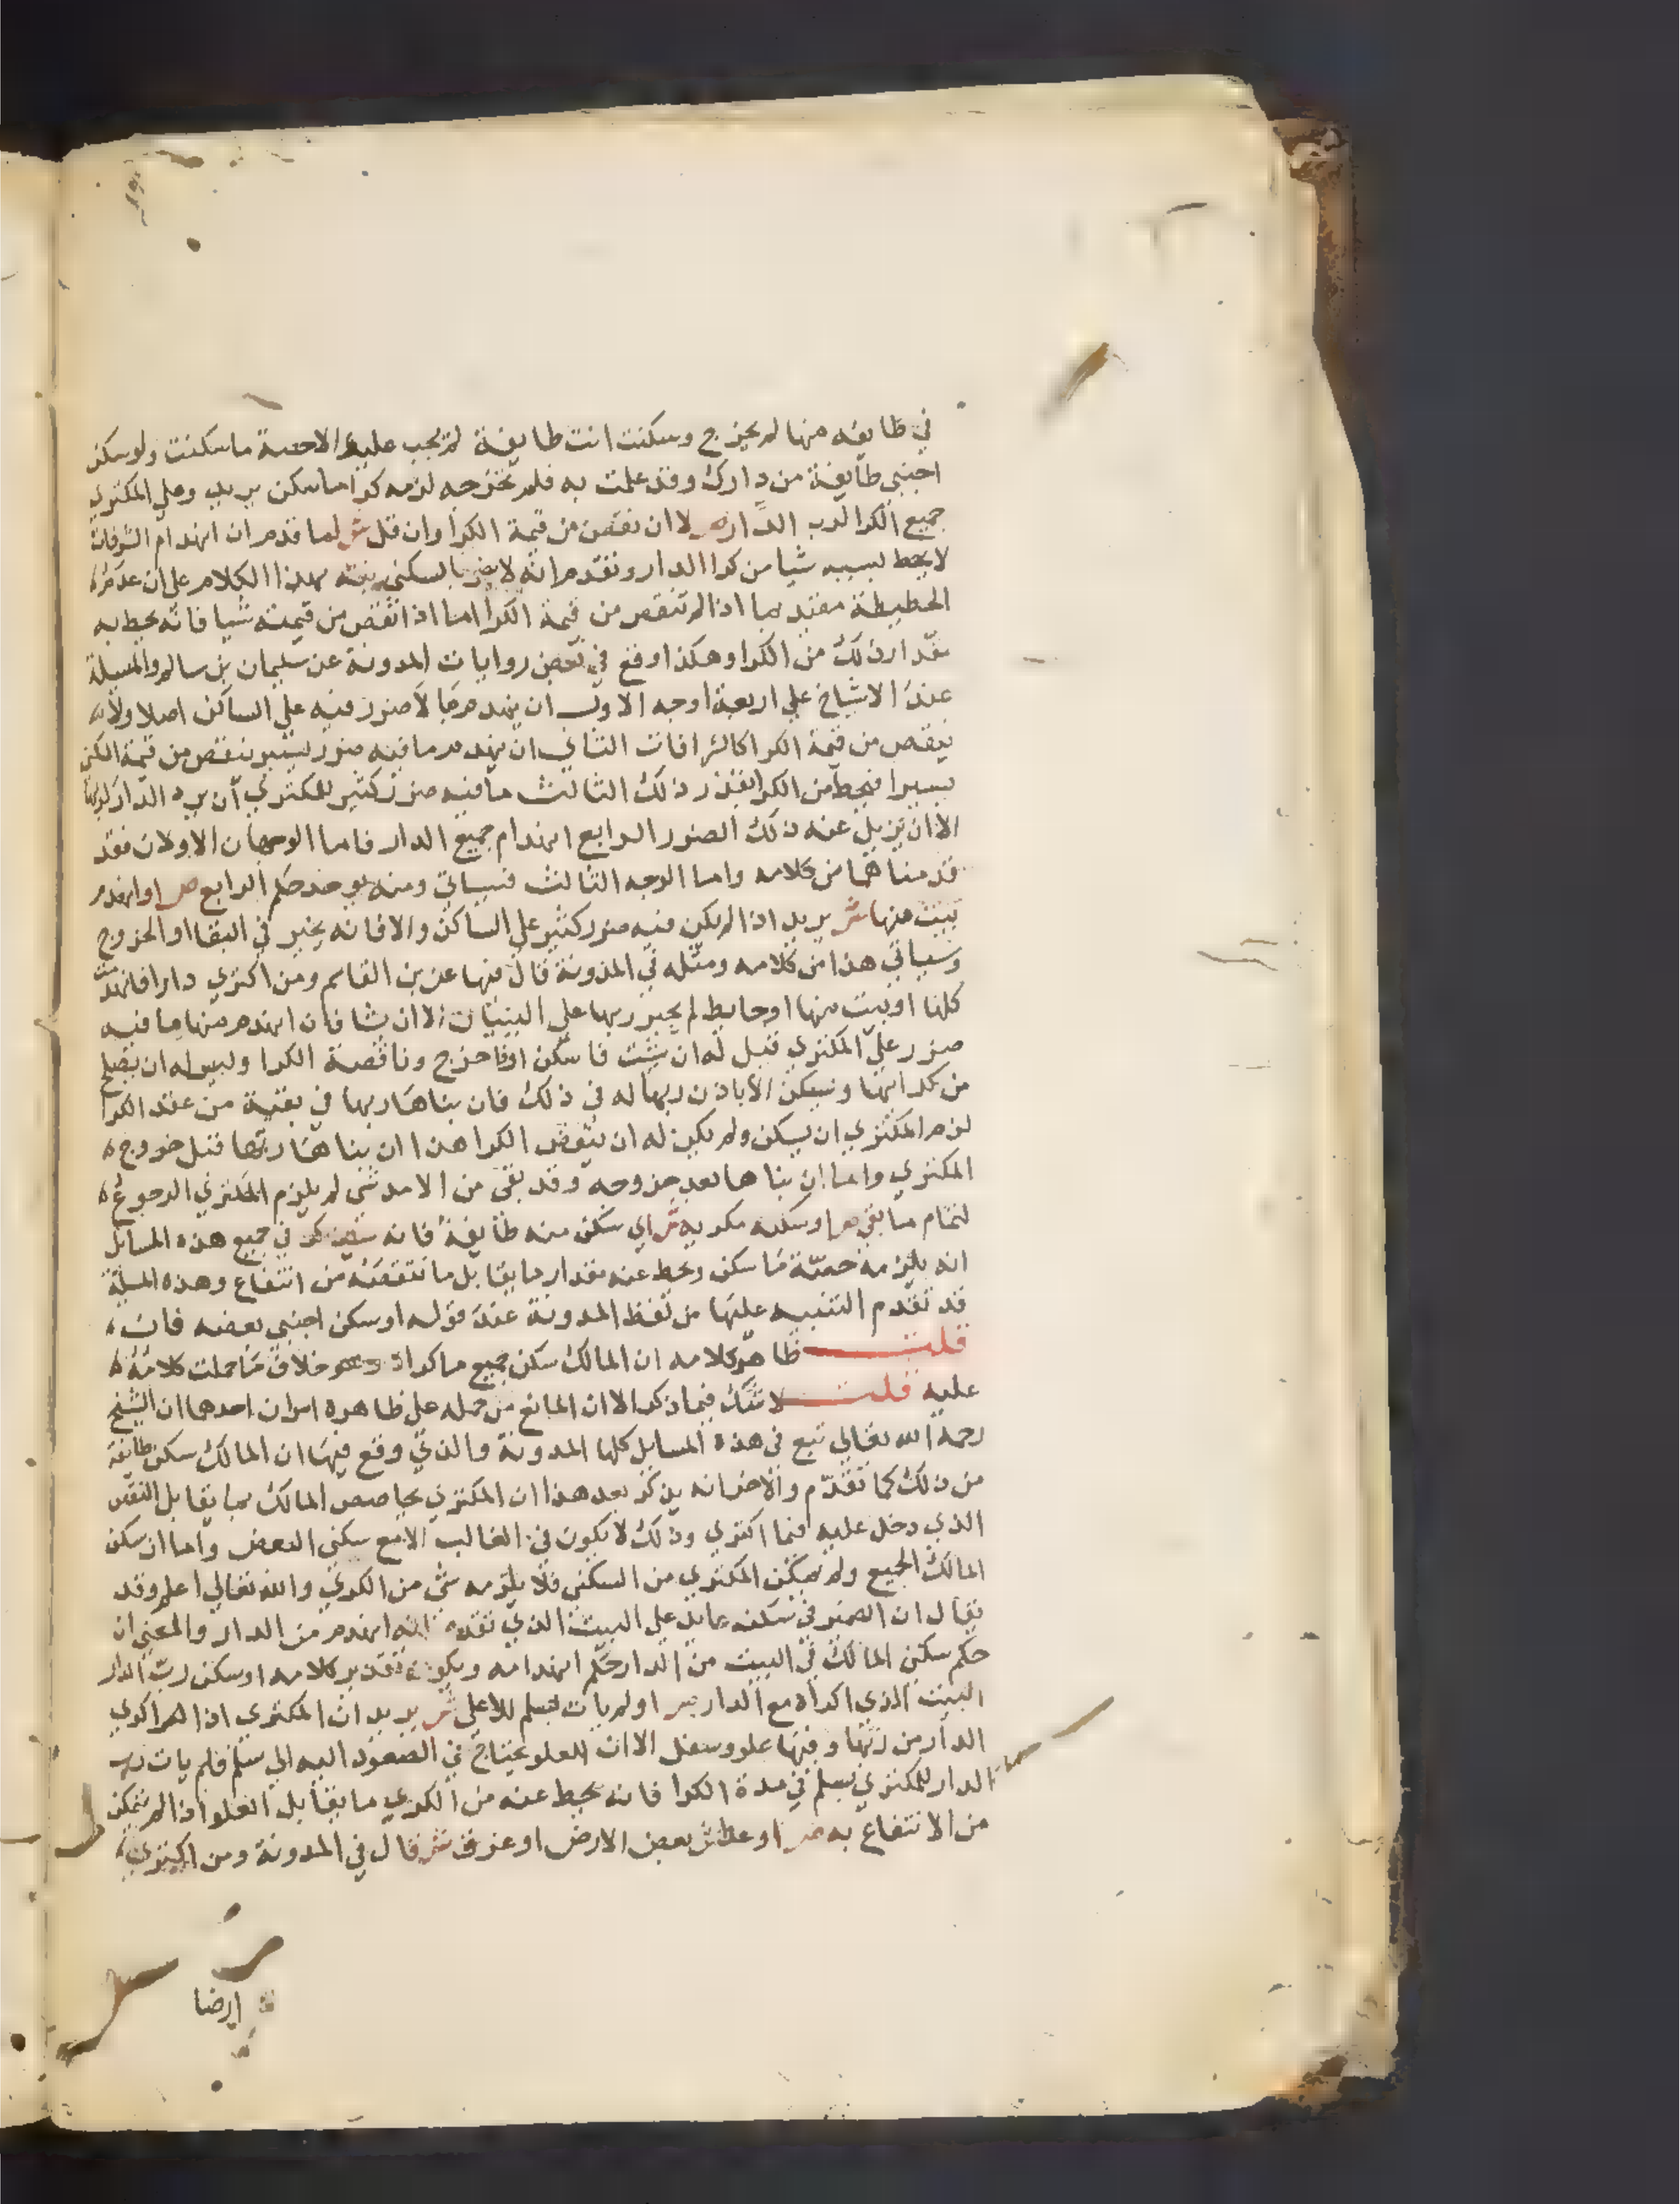 في طايفه منها لم يخرج وسكنت انت طايفة لم يجب عليه الاحصة ما سكنت ولو سكن
اجنبي طايفة من دارك وقد علمت به فلم تخرجه لزمه كرا ما سكن يريد وعلي المكتري
جميع الكرا لرب الدار ص لا ان نقص من قيمة الكرا وان قل ش لما قدم ان انهدام الشرفات
لا يحط بسببه شيا من كرا الدار وتقدم انه لا يضر بالسكني نبه بهذا الكلام علي ان عدم
الحطيطة مقيد بما اذا لم تنقص من قيمة الكرا اما اذا نقص من قيمته شيا فانه يحط به
مقدار ذلك من الكرا وهكذا وقع في بعض روايات المدونة عن سليمان بن سالم والمسيلة
عند الاشياخ علي اربعة اوجه الاول ان ينهدم ما لا ضرر فيه علي الساكن اصلا ولا
ينقص من قيمة الكرا كالشرافات الثاني ان ينهدم ما فيه ضرر يسير ينقص من قيمة الكرا
يسيرا فيحط من الكرا بقدر ذلك الثالث ما فيه ضرر كثير للمكتري ان يرد الدار لربها
الا ان يزيل عنه ذلك الضرر الرابع انهدام جميع الدار فاما الوجهان الاولان فقد
قدمناهما من كلامه واما الوجه الثالث فسياتي ومنه يوخذ حكم الرابع ص او انهدم
بيت منها ش يريد اذا لم يكن فيه ضرر كثير علي الساكن والا فانه يخير في البقا او الخروج
وسياتي هذا من كلامه ومثله في المدونة قال فيها عن بن القاسم ومن اكتري دارا فانهدمت
كلها او بيت منها او حايط لم يجبر ربها علي البنيان الا ان يشا فان انهدم منها ما فيه
ضرر علي المكتري قيل له ان شيت فاسكن او فاخرج وناقصة الكرا وليس له ان يصلح
من كرايها ويسكن الا باذن ربها له في ذلك فان بناها ربها في بقية من عقد الكرا
لزم المكتري ان يسكن ولم يكن له ان ينقض الكرا هذا ان بناها ربها قبل خروج
المكتري واما ان بناها بعد خروجه وقد بقي من الامد شي لم يلزم المكتري الرجوع
لتمام ما بقي ص او سكنه مكريه ش اي سكن منه طايفة فانه سيذكر في جميع هذه المسايل
انه يلزمه حصة ما سكن ويحط عنه مقدار ما يقابل ما نتقصه من انتفاع وهذه المسيلة
قد تقدم التنبيه عليها من لفظ المدونة عند قوله او سكن اجنبي بعضه فان
قلت ظاهر كلامه ان المالك سكن جميع ما كراه وهو خلاف ما حملت كلامه
عليه قلت لا شك فيما ذكر الا ان المانع من حمله علي ظاهره امران احدهما ان الشيخ
رحمه الله تعالي تبع في هذه المسايل كلها المدونة والذي وقع فيها ان المالك سكن طايفة
من ذلك كما تقدم والاخر انه يذكر بعد هذا ان المكتري يحاصص المالك بما يقابل النقص
الذي دخل عليه فيما اكتري وذلك لا يكون في الغالب الا مع سكني البعض واما ان سكن
المالك الجميع ولم يمكن المكتري من السكني فلا يلزمه شي من الكري والله تعالي اعلم وقد
يقال ان الضمير في سكنه عايد علي البيت الذي تقدم انه انهدم من الدار والمعني ان
حكم سكني المالك في البيت من الدار حكم انهدامه ويكون تقدير كلامه او سكن رب الدار
البيت الذي اكراه مع الدار ص او لم يات بسلم للاعلي ش يريد ان المكتري اذا اكري
الدار من ربها وفيها علو وسفل الا ان العلو يحتاج في الصعود اليه الي سلم فلم يات رب
الدار للمكتري بسلم في مدة الكرا فانه يحط عنه من الكري ما يقابل العلو اذا لم يتمكن
من الانتفاع به ص او عطش بعض الارض او غرق ش قال في المدونة ومن اكتري
ارضا